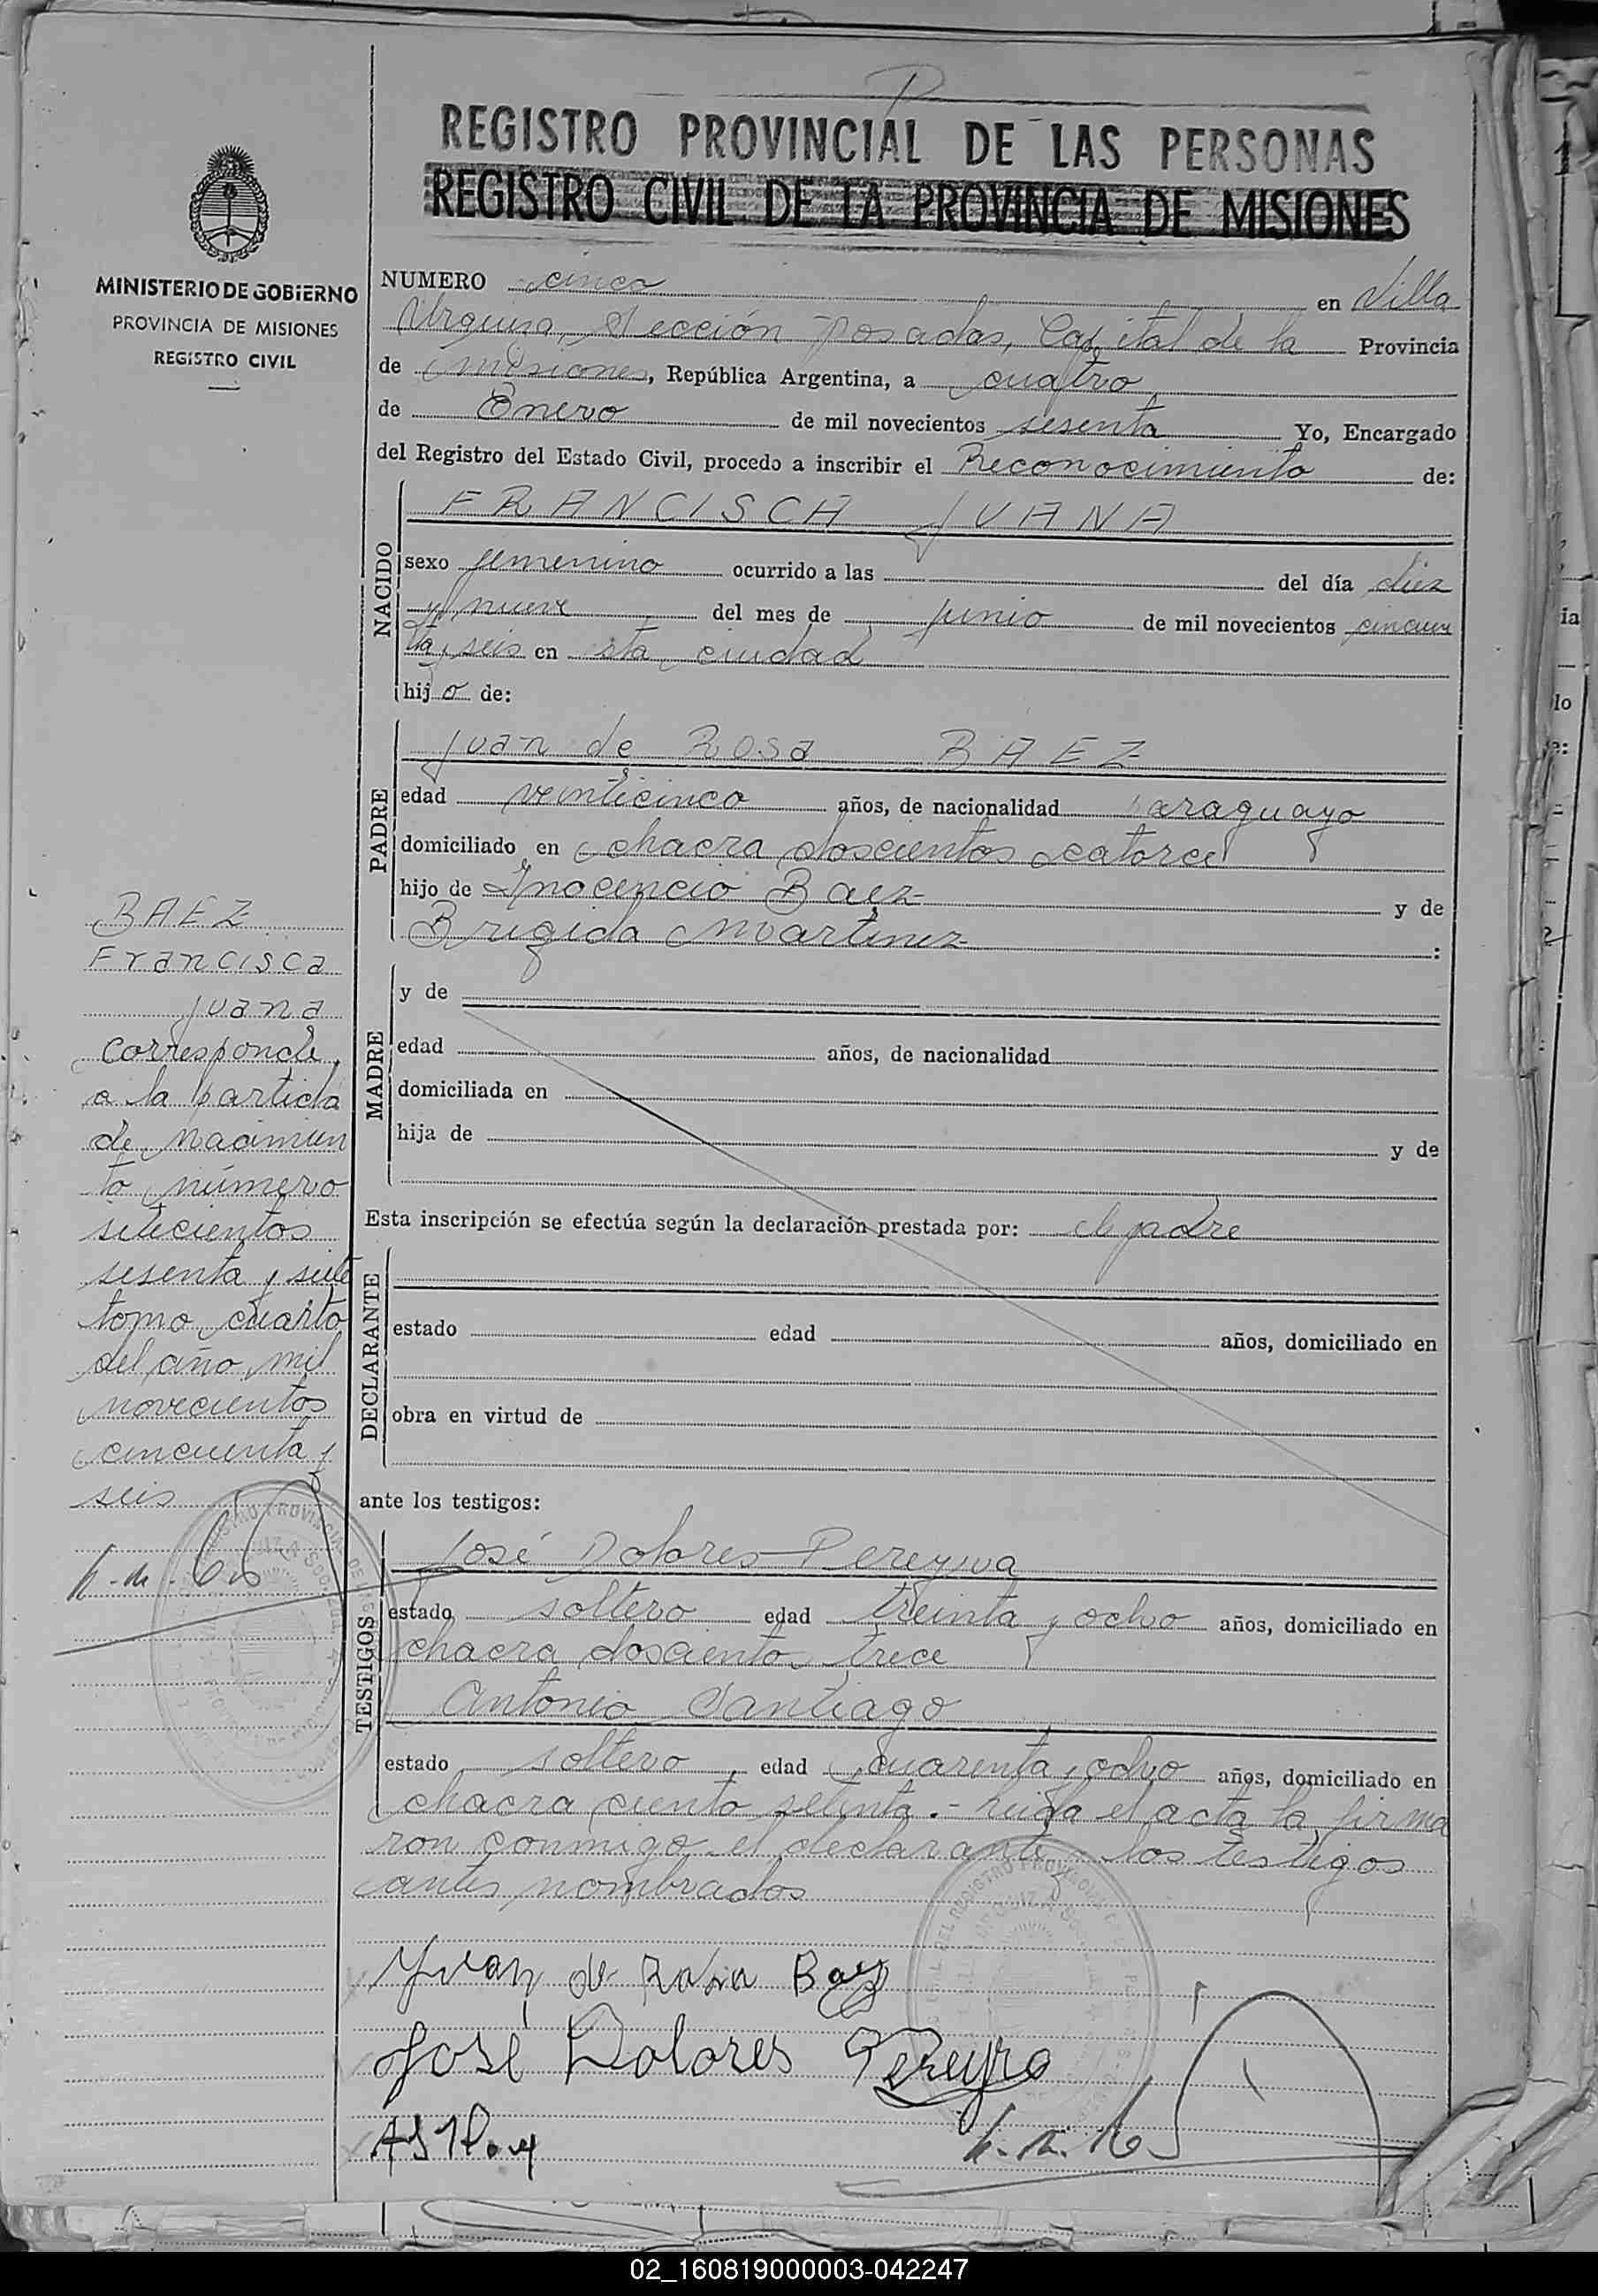 REGISTRO PROVINCIAL DE LAS PERSONAS
REGISTRO CIVIL DE LA PROVINCIA DE MISIONES
MINISTERIO DE GOBIERNO
PROVINCIA DE MISIONES
REGISTRO CIVIL
NUMERO cinco en Villa
Urquiza, Sección Posadas, Capital de la Provincia
de Misiones, República Argentina, a cuatro
de Enero de mil novecientos sesenta Yo, Encargado
del Registro del Estado Civil, procedo a inscribir el Reconocimiento de:
NACIDO
FRANCISCA JUANA
sexo femenino ocurrido a las del día diez
y nueve del mes de junio de mil novecientos cincuen
ta y seis en esta ciudad
hijo de:
PADRE
Juan de Rosa BAEZ
edad veinticinco años, de nacionalidad paraguayo
domiciliado en chacra doscientos catorce
hijo de Inocencio Baez y de
Brigida Martinez :
MADRE
y de
edad años, de nacionalidad
domiciliada en
hija de y de
Esta inscripción se efectúa según la declaración prestada por: el padre
DECLARANTE
estado edad años, domiciliado en
obra en virtud de
ante los testigos:
TESTIGOS
José Dolores Pereyra
estado soltero edad treinta y ocho años, domiciliado en
chacra doscientos trece
Antonio Santiago
estado soltero, edad cuarenta y ocho años, domiciliado en
chacra ciento setenta.- Leida el acta la firma
ron conmigo el declarante y los testigos
antes nombrados
Juan de Rosa Baez
José Dolores Pereyra
BAEZ
Francisca
Juana
Corresponde
a la partida
de nacimien
to número
setecientos
sesenta y siete
tomo cuarto
del año mil
novecientos
cincuenta y
seis
02_160819000003-042247